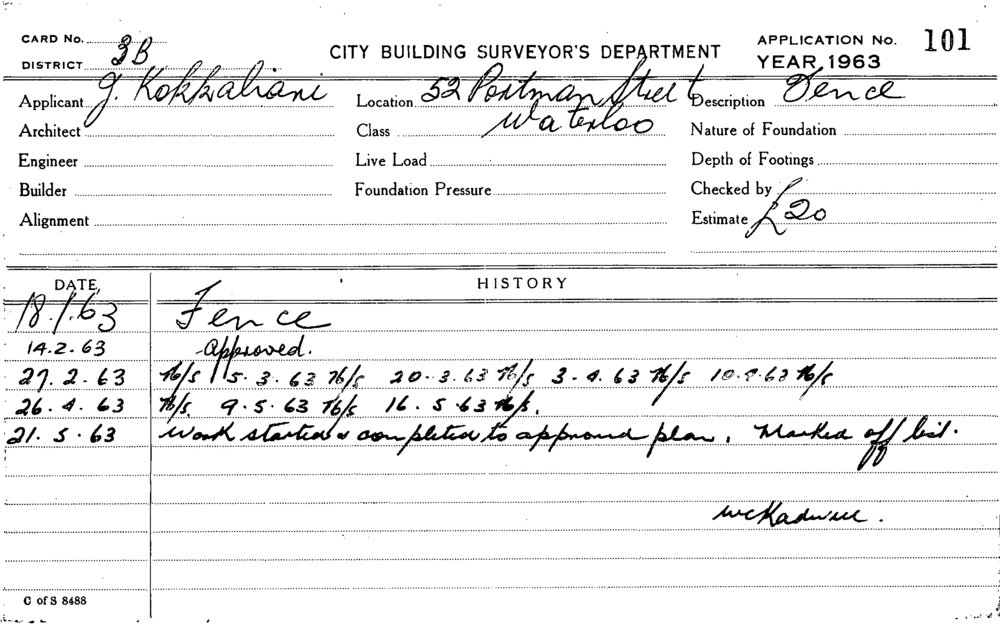 CARD No.
DISTRICT 3B
CITY BUILDING SURVEYOR'S DEPARTMENT
APPLICATION No. 101
YEAR, 1963
Applicant J. Kokkaliani
Location 52 Portman Street
Waterloo
Description Fence
Architect
Class
Nature of Foundation
Engineer
Live Load
Depth of Footings
Builder
Foundation Pressure
Checked by
Alignment
Estimate £20
DATE,
HISTORY
18.1.63 Fence
14.2.63 Approved.
27.2.63 N/S 15.3.63 N/S 20.3.63 N/S 3.4.63 N/S 10.4.63 N/S
26.4.63 N/S 9.5.63 N/S 16.5.63 N/S.
21.5.63 Work started & completed to approved plan. Marked off list.
C of S 8488